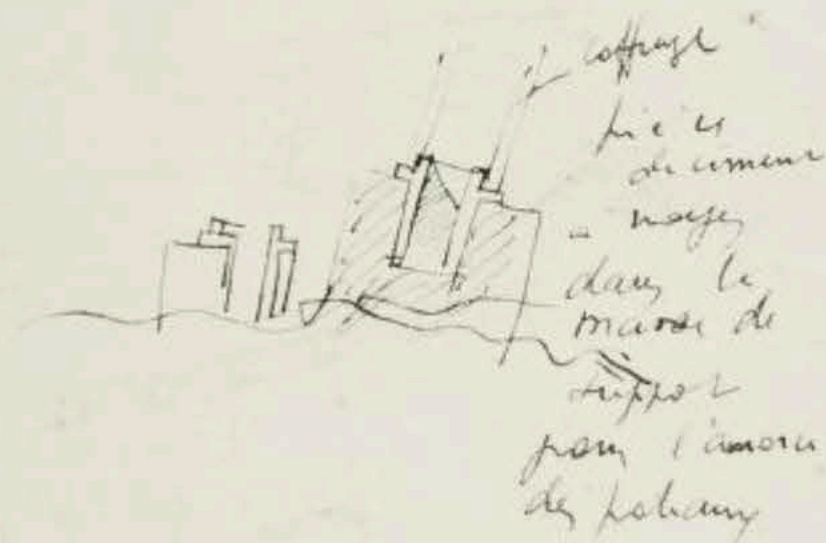 coffrage
pièces
de ciment
noyés
dans la
masse de
support
pour l'amorce
des poteaux